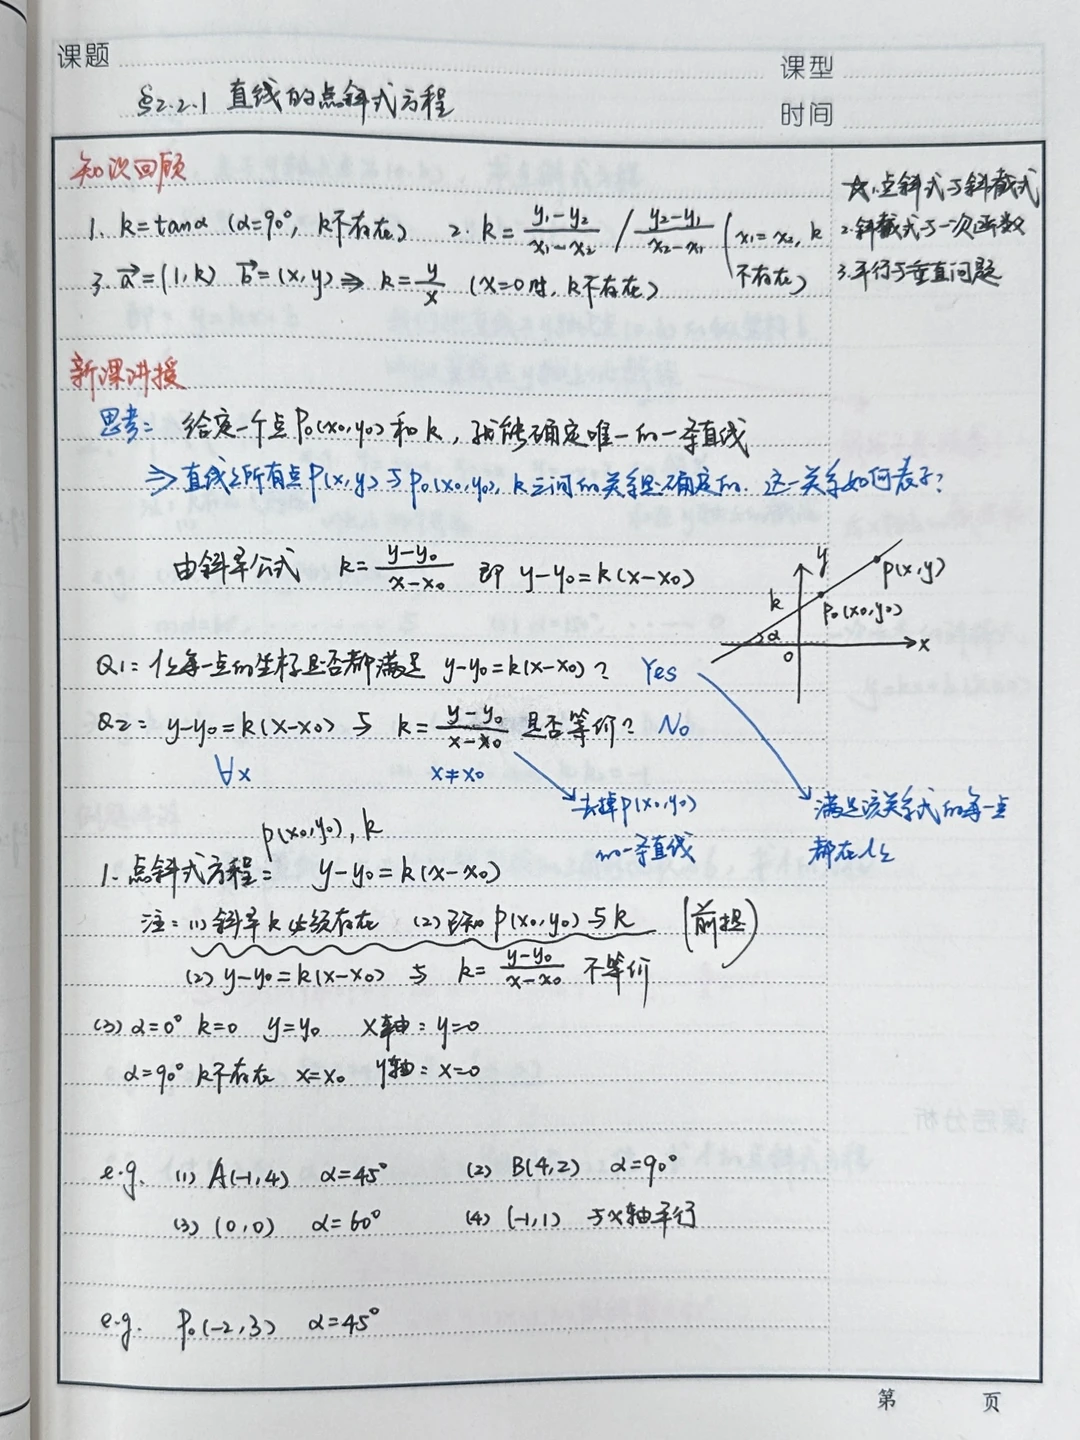 课题
课型
§2.2.1 直线的点斜式方程
时间
知识回顾
1. k=tanα (α=90°, k不存在) 2. k=\frac{y₁-y₂}{x₁-x₂} / \frac{y₂-y₁}{x₂-x₁} (x₁=x₂, k
不存在)
3. \vec{a}=(1,k) \vec{b}=(x,y) ⇒ k=\frac{y}{x} (x=0时, k不存在)
☆1. 点斜式与斜截式
2. 斜截式与一次函数
3. 平行与垂直问题
新课讲授
思考: 给定一个点P₀(x₀,y₀)和k, 就能确定唯一的一条直线
⇒ 直线上所有点P(x,y)与P₀(x₀,y₀), k之间的关系是确定的. 这一关系如何表示?
由斜率公式 k=\frac{y-y₀}{x-x₀} 即 y-y₀=k(x-x₀)
y
P(x,y)
k
P₀(x₀,y₀)
α
0
x
Q1: l上每一点的坐标是否都满足 y-y₀=k(x-x₀)? Yes
Q2: y-y₀=k(x-x₀) 与 k=\frac{y-y₀}{x-x₀} 是否等价? No
∀x x≠x₀
去掉P(x₀,y₀)
的一条直线
满足该关系式的每一点
都在l上
P(x₀,y₀), k
1. 点斜式方程: y-y₀=k(x-x₀)
注: (1) 斜率k必须存在 (2) 已知P(x₀,y₀)与k (前提)
(2) y-y₀=k(x-x₀) 与 k=\frac{y-y₀}{x-x₀} 不等价
(3) α=0° k=0 y=y₀ x轴: y=0
α=90° k不存在 x=x₀ y轴: x=0
e.g. (1) A(-1,4) α=45° (2) B(4,2) α=90°
(3) (0,0) α=60° (4) (-1,1) 与x轴平行
e.g. P₀(-2,3) α=45°
第 页